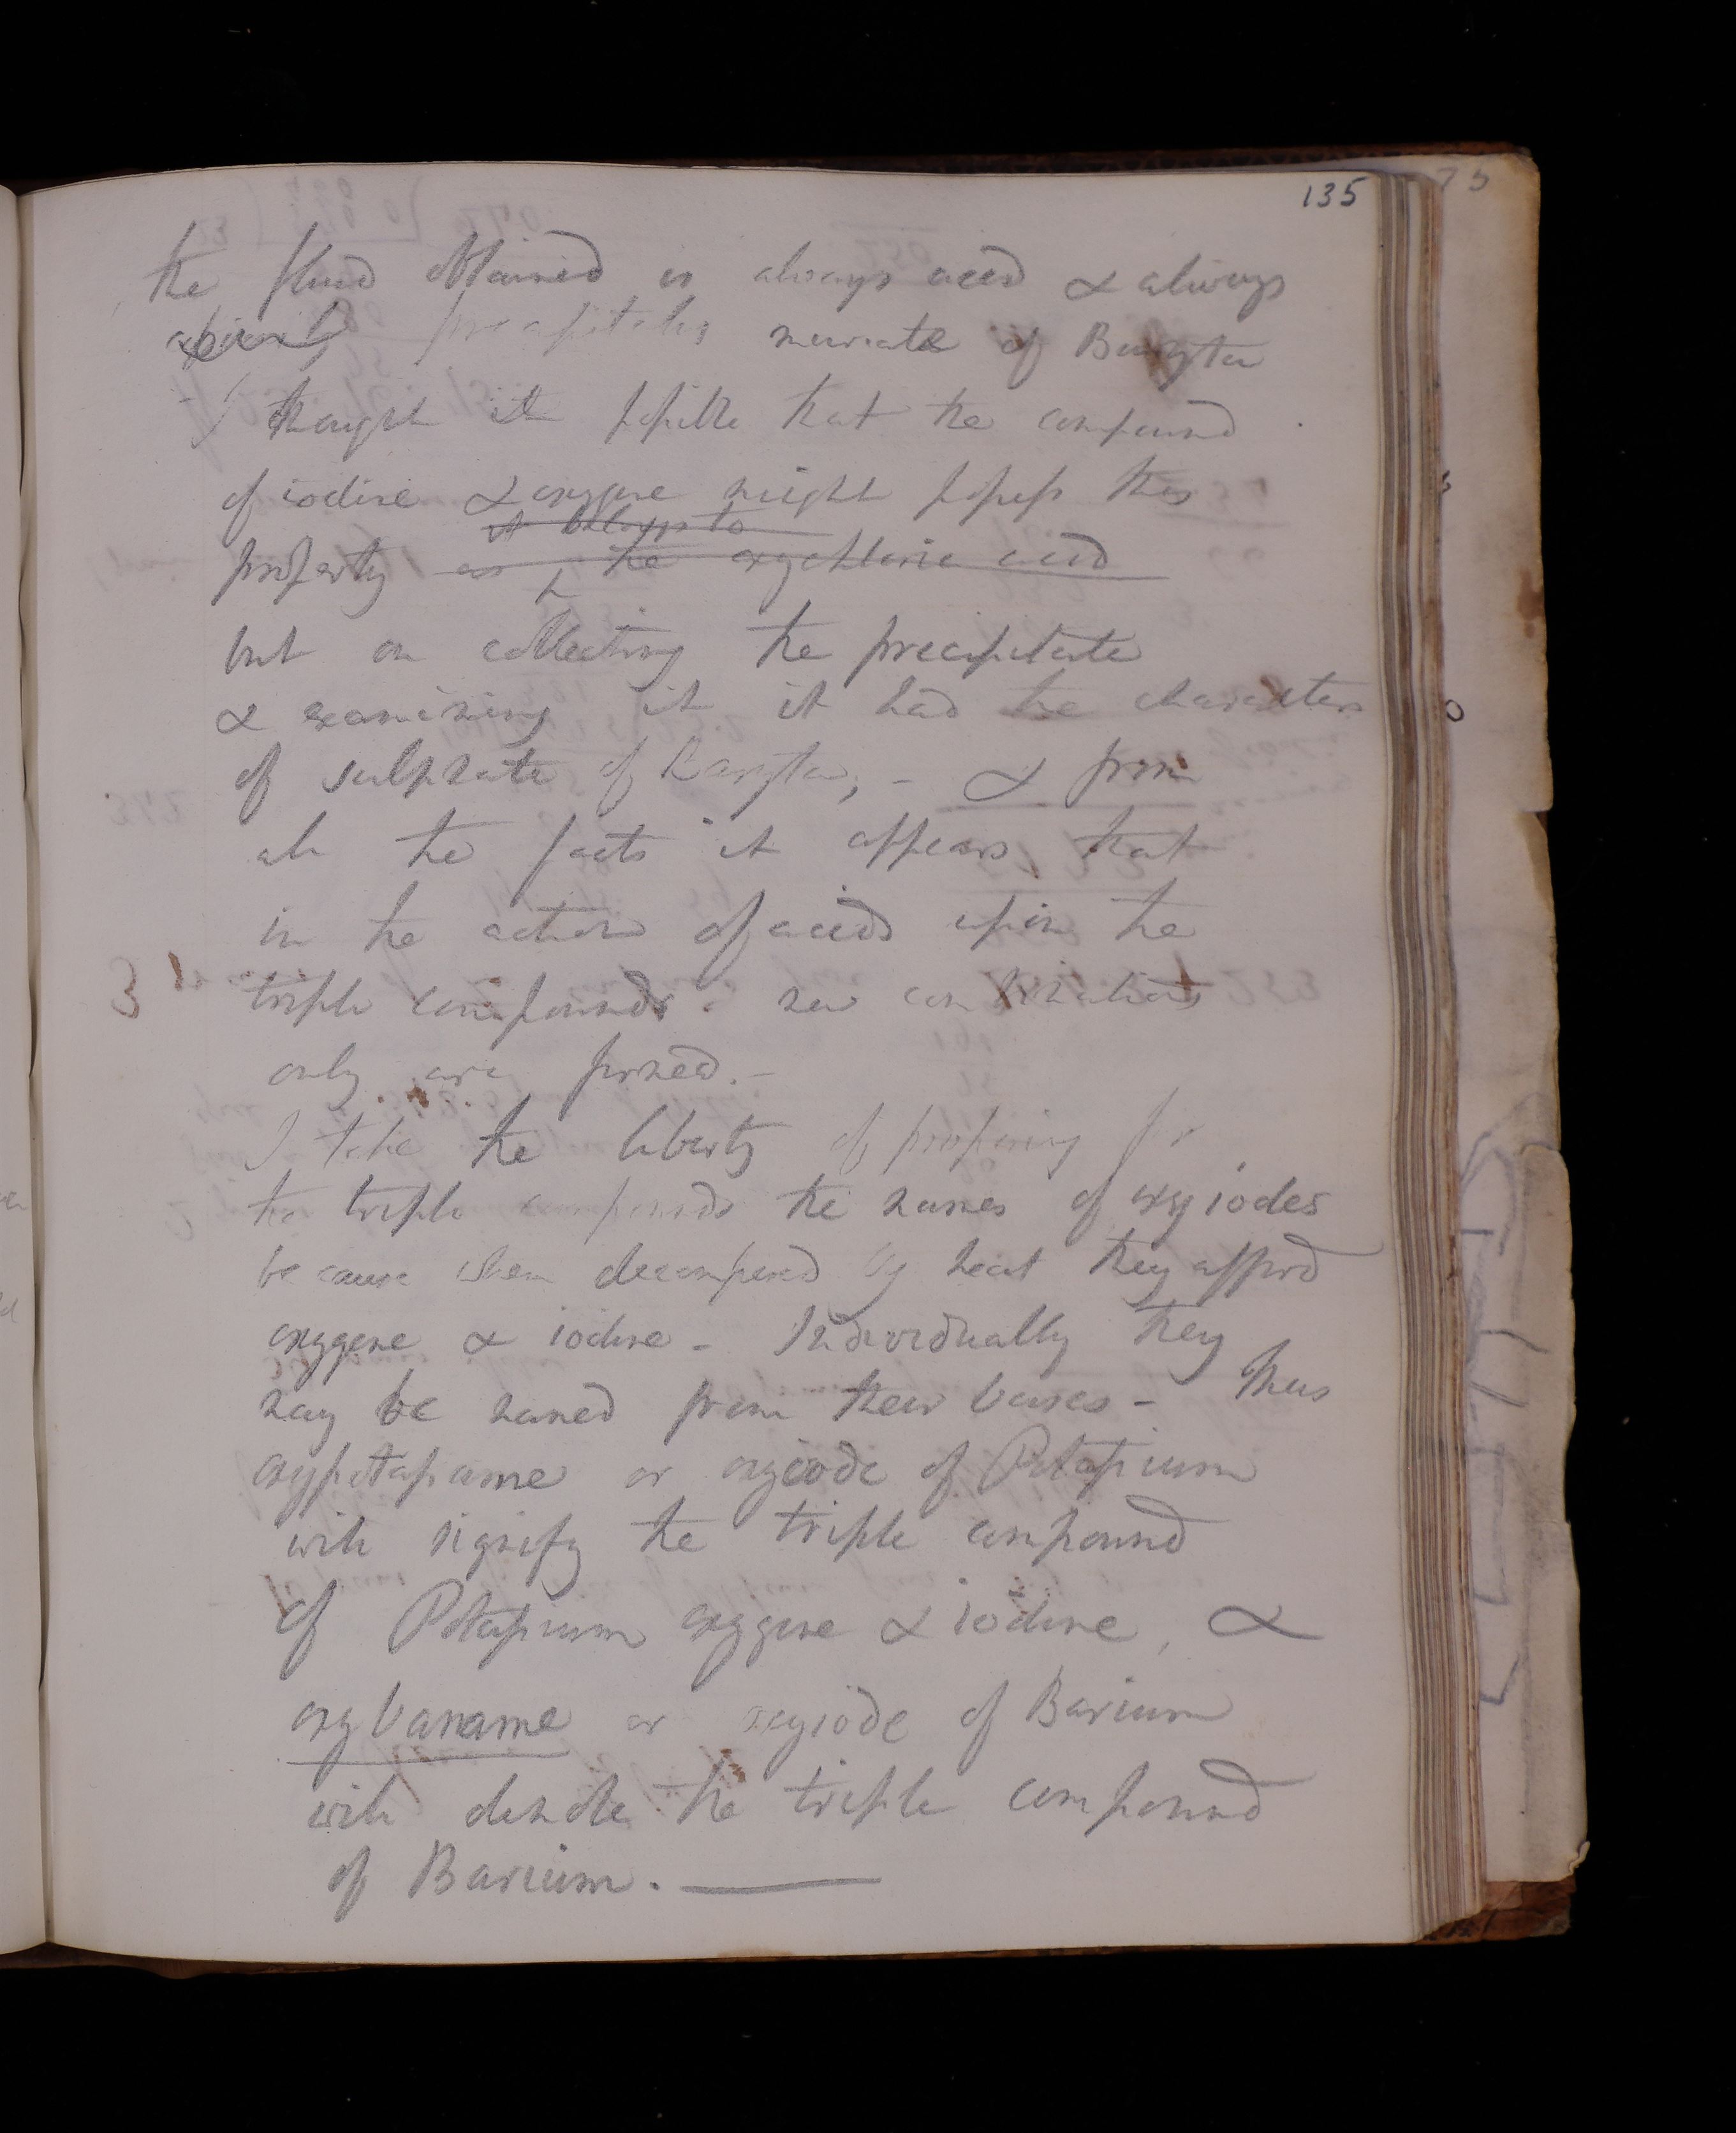 135
the fluid obtained is always acid & always
precipitates muriate of Baryta
I thought it possible that the compound
of iodine & oxygene might possess this
it belongs to
property as the oxychloric acid
but on collecting the precipitate
& examining it it had the characters
of sulphate of Baryta, - & from
all the facts it appears that
in the action of acids upon the
triple compounds new combinations
only are formed. -
I take the liberty of proposing for
the triple compounds the names of oxyiodes
because when decomposed by heat they afford
oxygene & iodine - Individually they
may be named from their bases - Thus
oxypotassame or oxyiode of Potassium
will signify the triple compound
of Potassium oxygene & iodine, &
oxybaname or oxyiode of Barium
will denote the triple compound
of Barium.